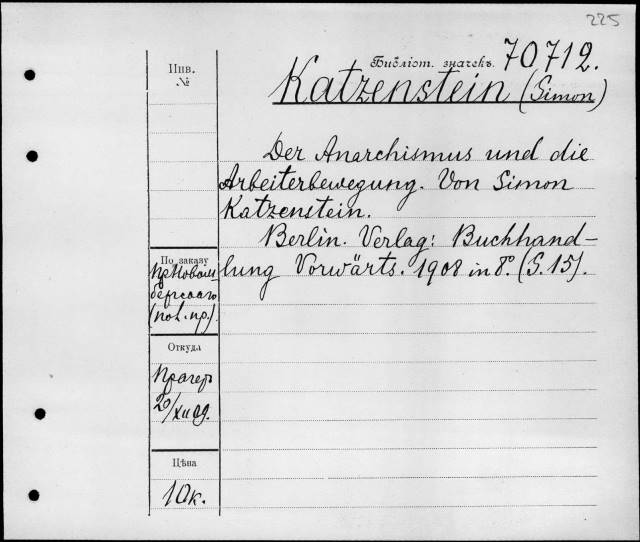 225
Библіот. значекъ. 70712.
Инв.
№
Katzenstein (Simon)
Der Anarchismus und die
Arbeiterbewegung. Von Simon
Katzenstein.
Berlin. Verlag: Buchhand-
lung Vorwärts. 1908 in 8°. (S. 15).
По заказу
Откуда
Прагеръ
Цѣна
10к.